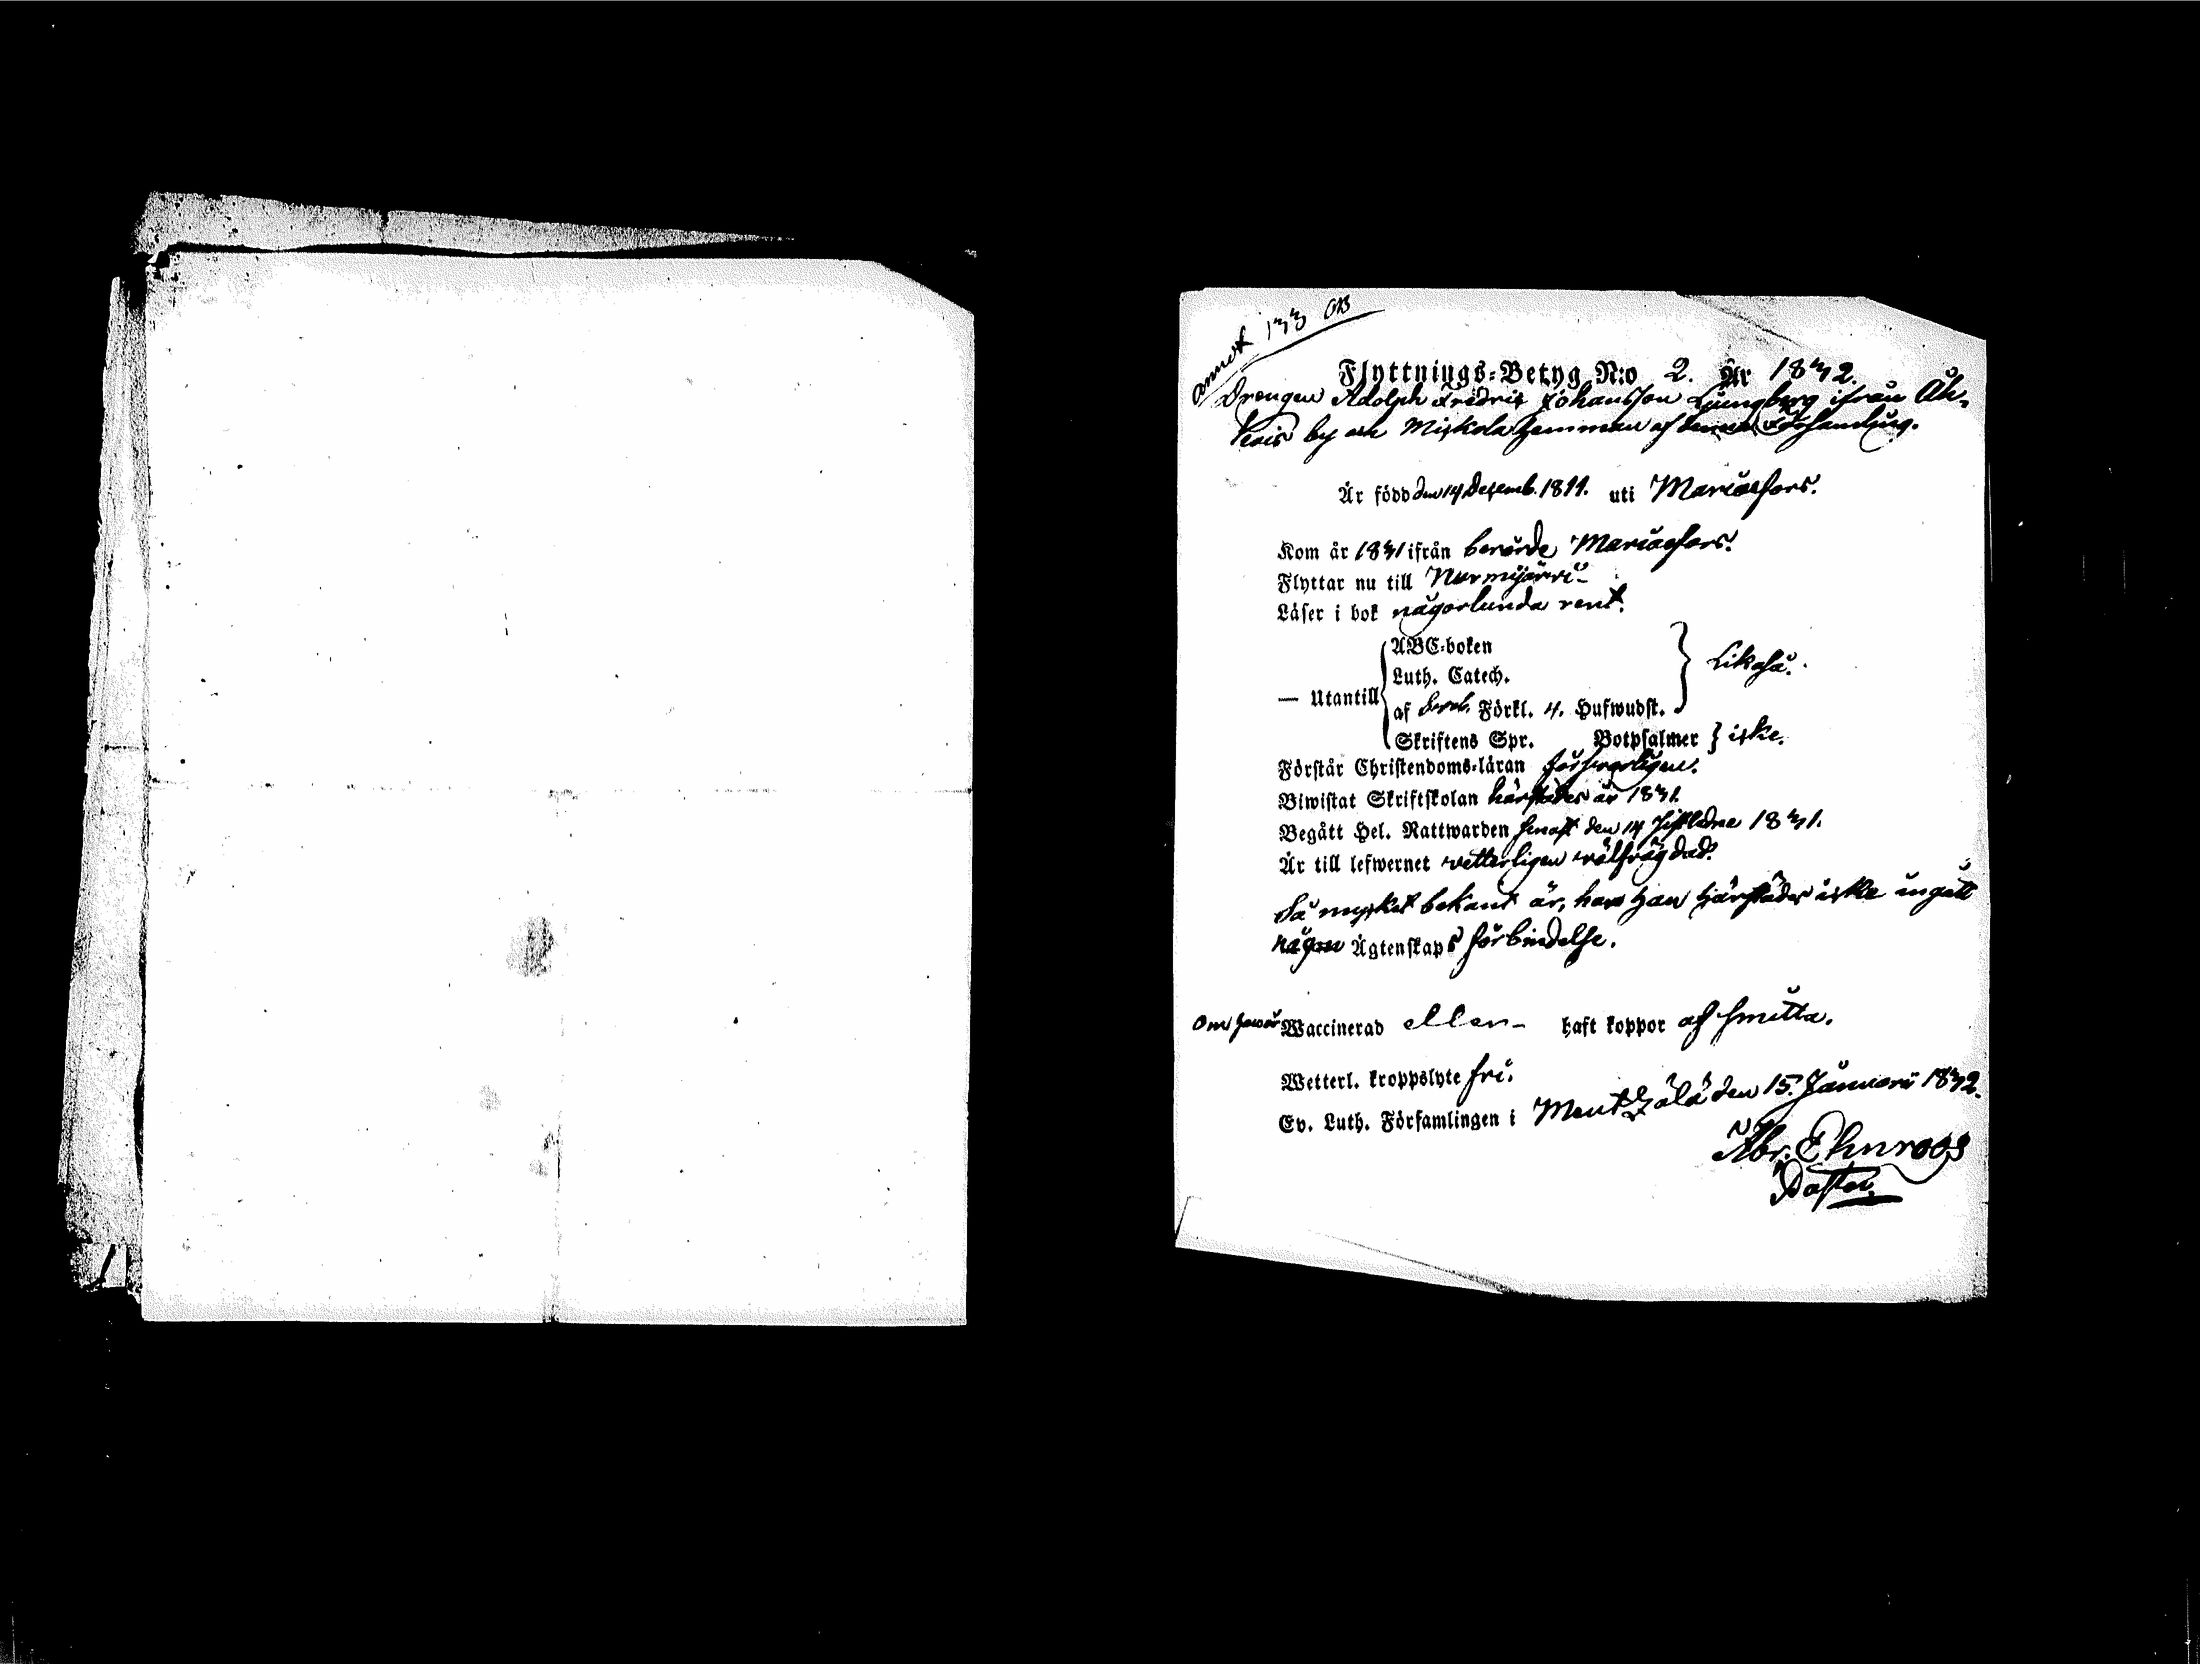 annot 133 OB
Flyttnings-Betyg N:o 2. År 1832.
Drengen Adolph Fredric Johansson Ljungberg ifrån Åh-
by och Miskola Hemman af denna Församling.
Är född den 14 Decemb. 1811. uti Mariæfors.
Kom år 1831 ifrån berörde Mariæfors.
Flyttar nu till Nurmijärvi
Läser i bok någorlunda rent.
— Utantill
ABC-boken
Luth. Catech.
af Sveb. Förkl. 4. Hufwudst.
Likaså.
Skriftens Spr. Botpsalmer } icke.
Förstår Christendoms-läran försvarligen.
Biwistat Skriftskolan härstädes år 1831.
Begått Hel. Nattwarden senast den 14 sistledne 1831.
Är till lefwernet vetterligen välfrägdad.
Så mycket bekant är, har han härstädes icke ingått
någon Ägtenskaps förbindelse.
Om han är Waccinerad eller haft koppor af smitta.
Wetterl. kroppslyte fri.
Ev. Luth. Församlingen i Mentzälä den 15. Januarii 1832.
Abr. Ehnroos
Pastor.